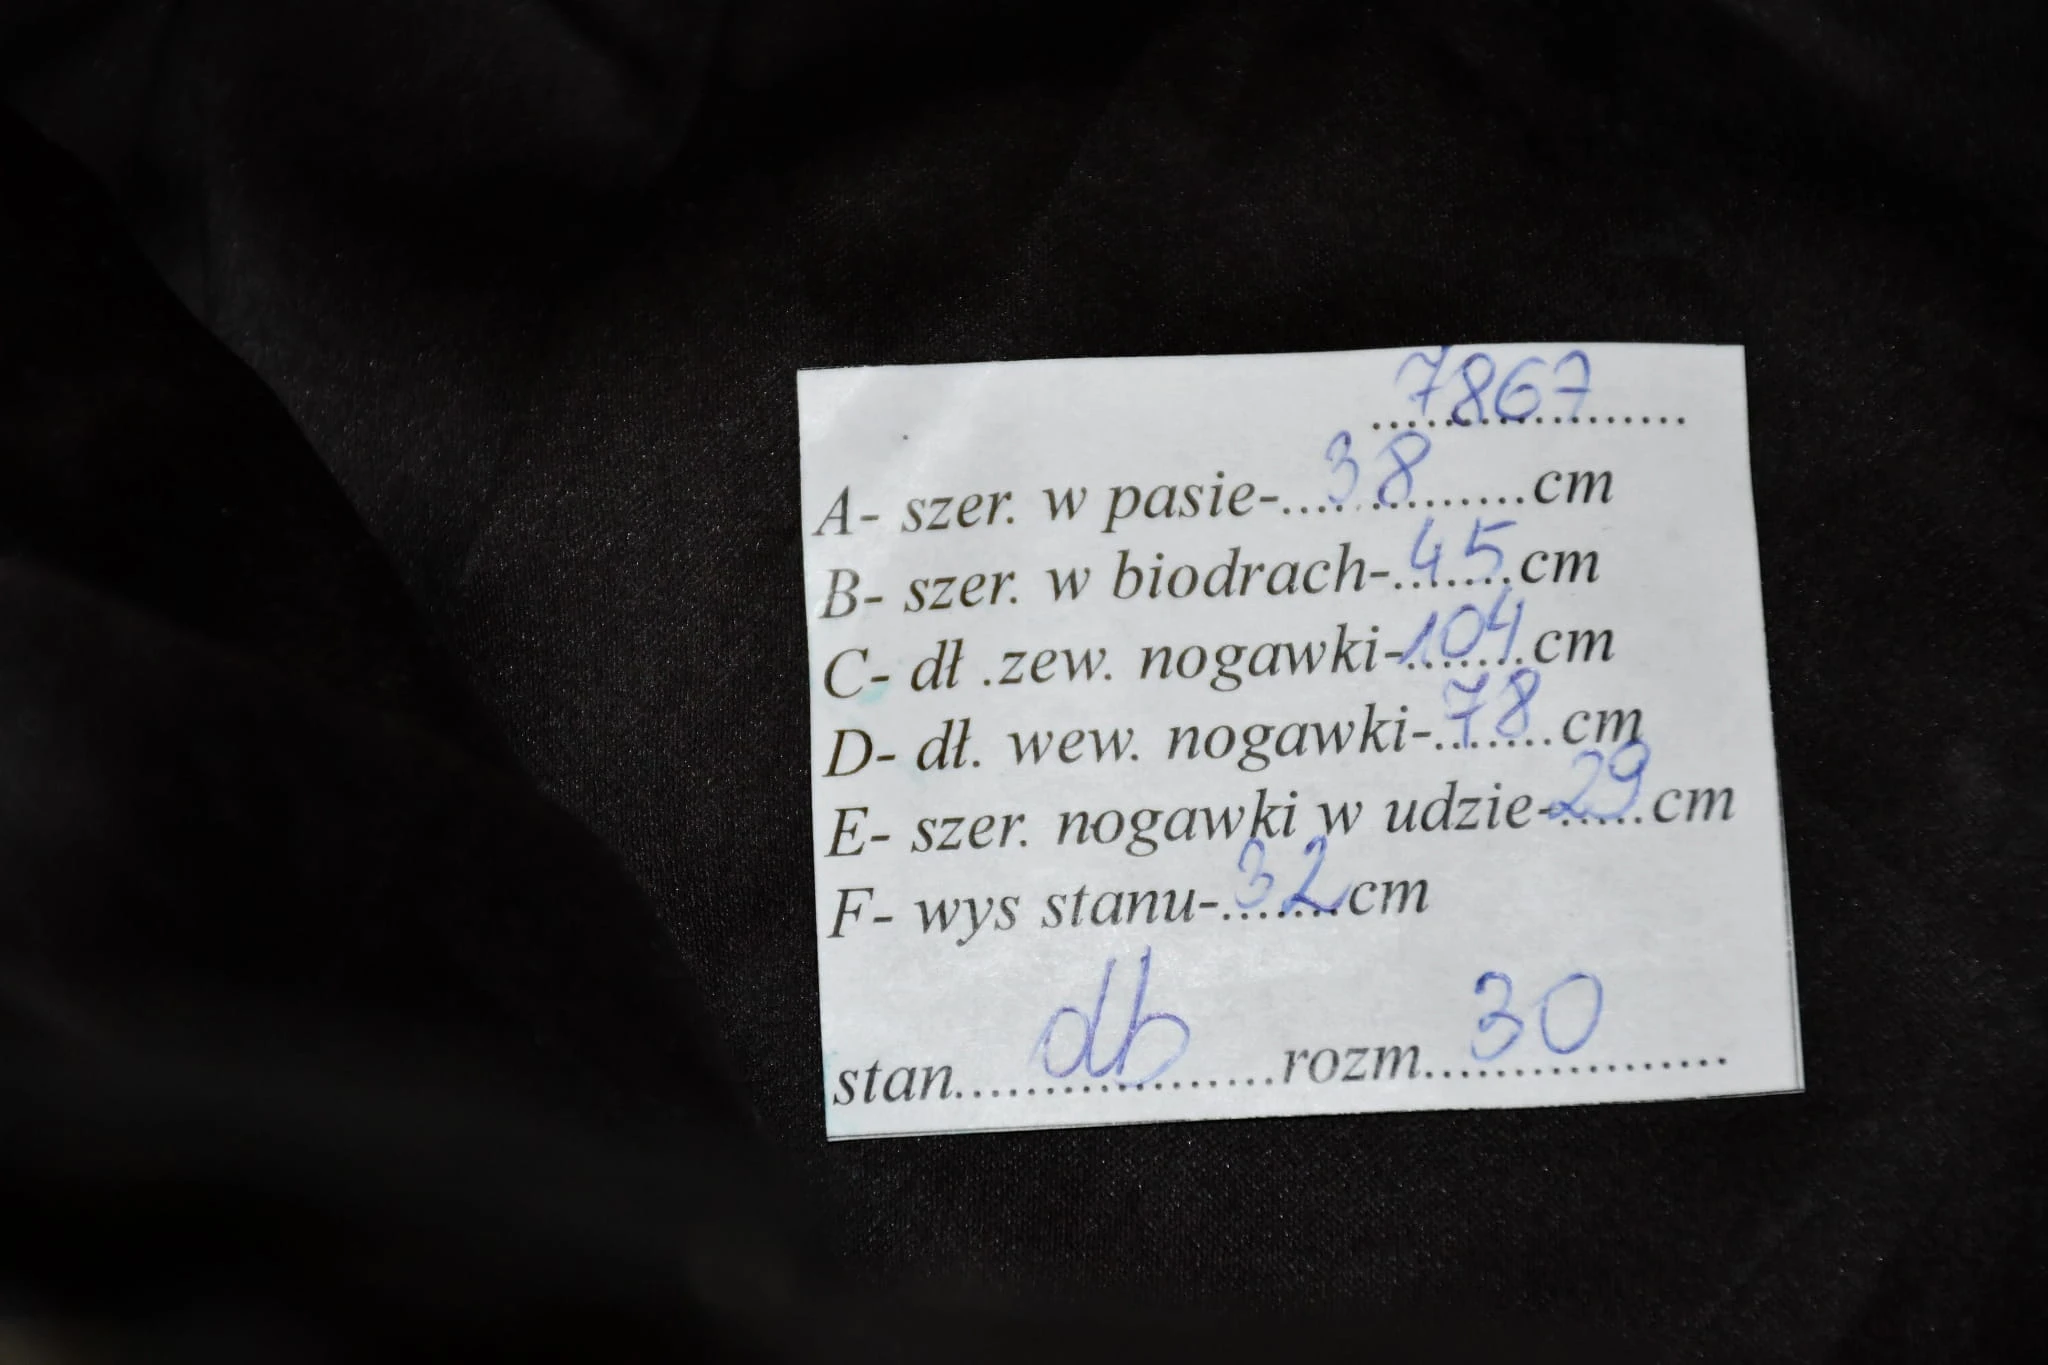 .......7867.......
A- szer. w pasie-....38.......cm
B- szer. w biodrach-.45..cm
C- dł .zew. nogawki-104.cm
D- dł. wew. nogawki-.78..cm
E- szer. nogawki w udzie-29...cm
F- wys stanu-.32.cm
stan......db......rozm...30.......